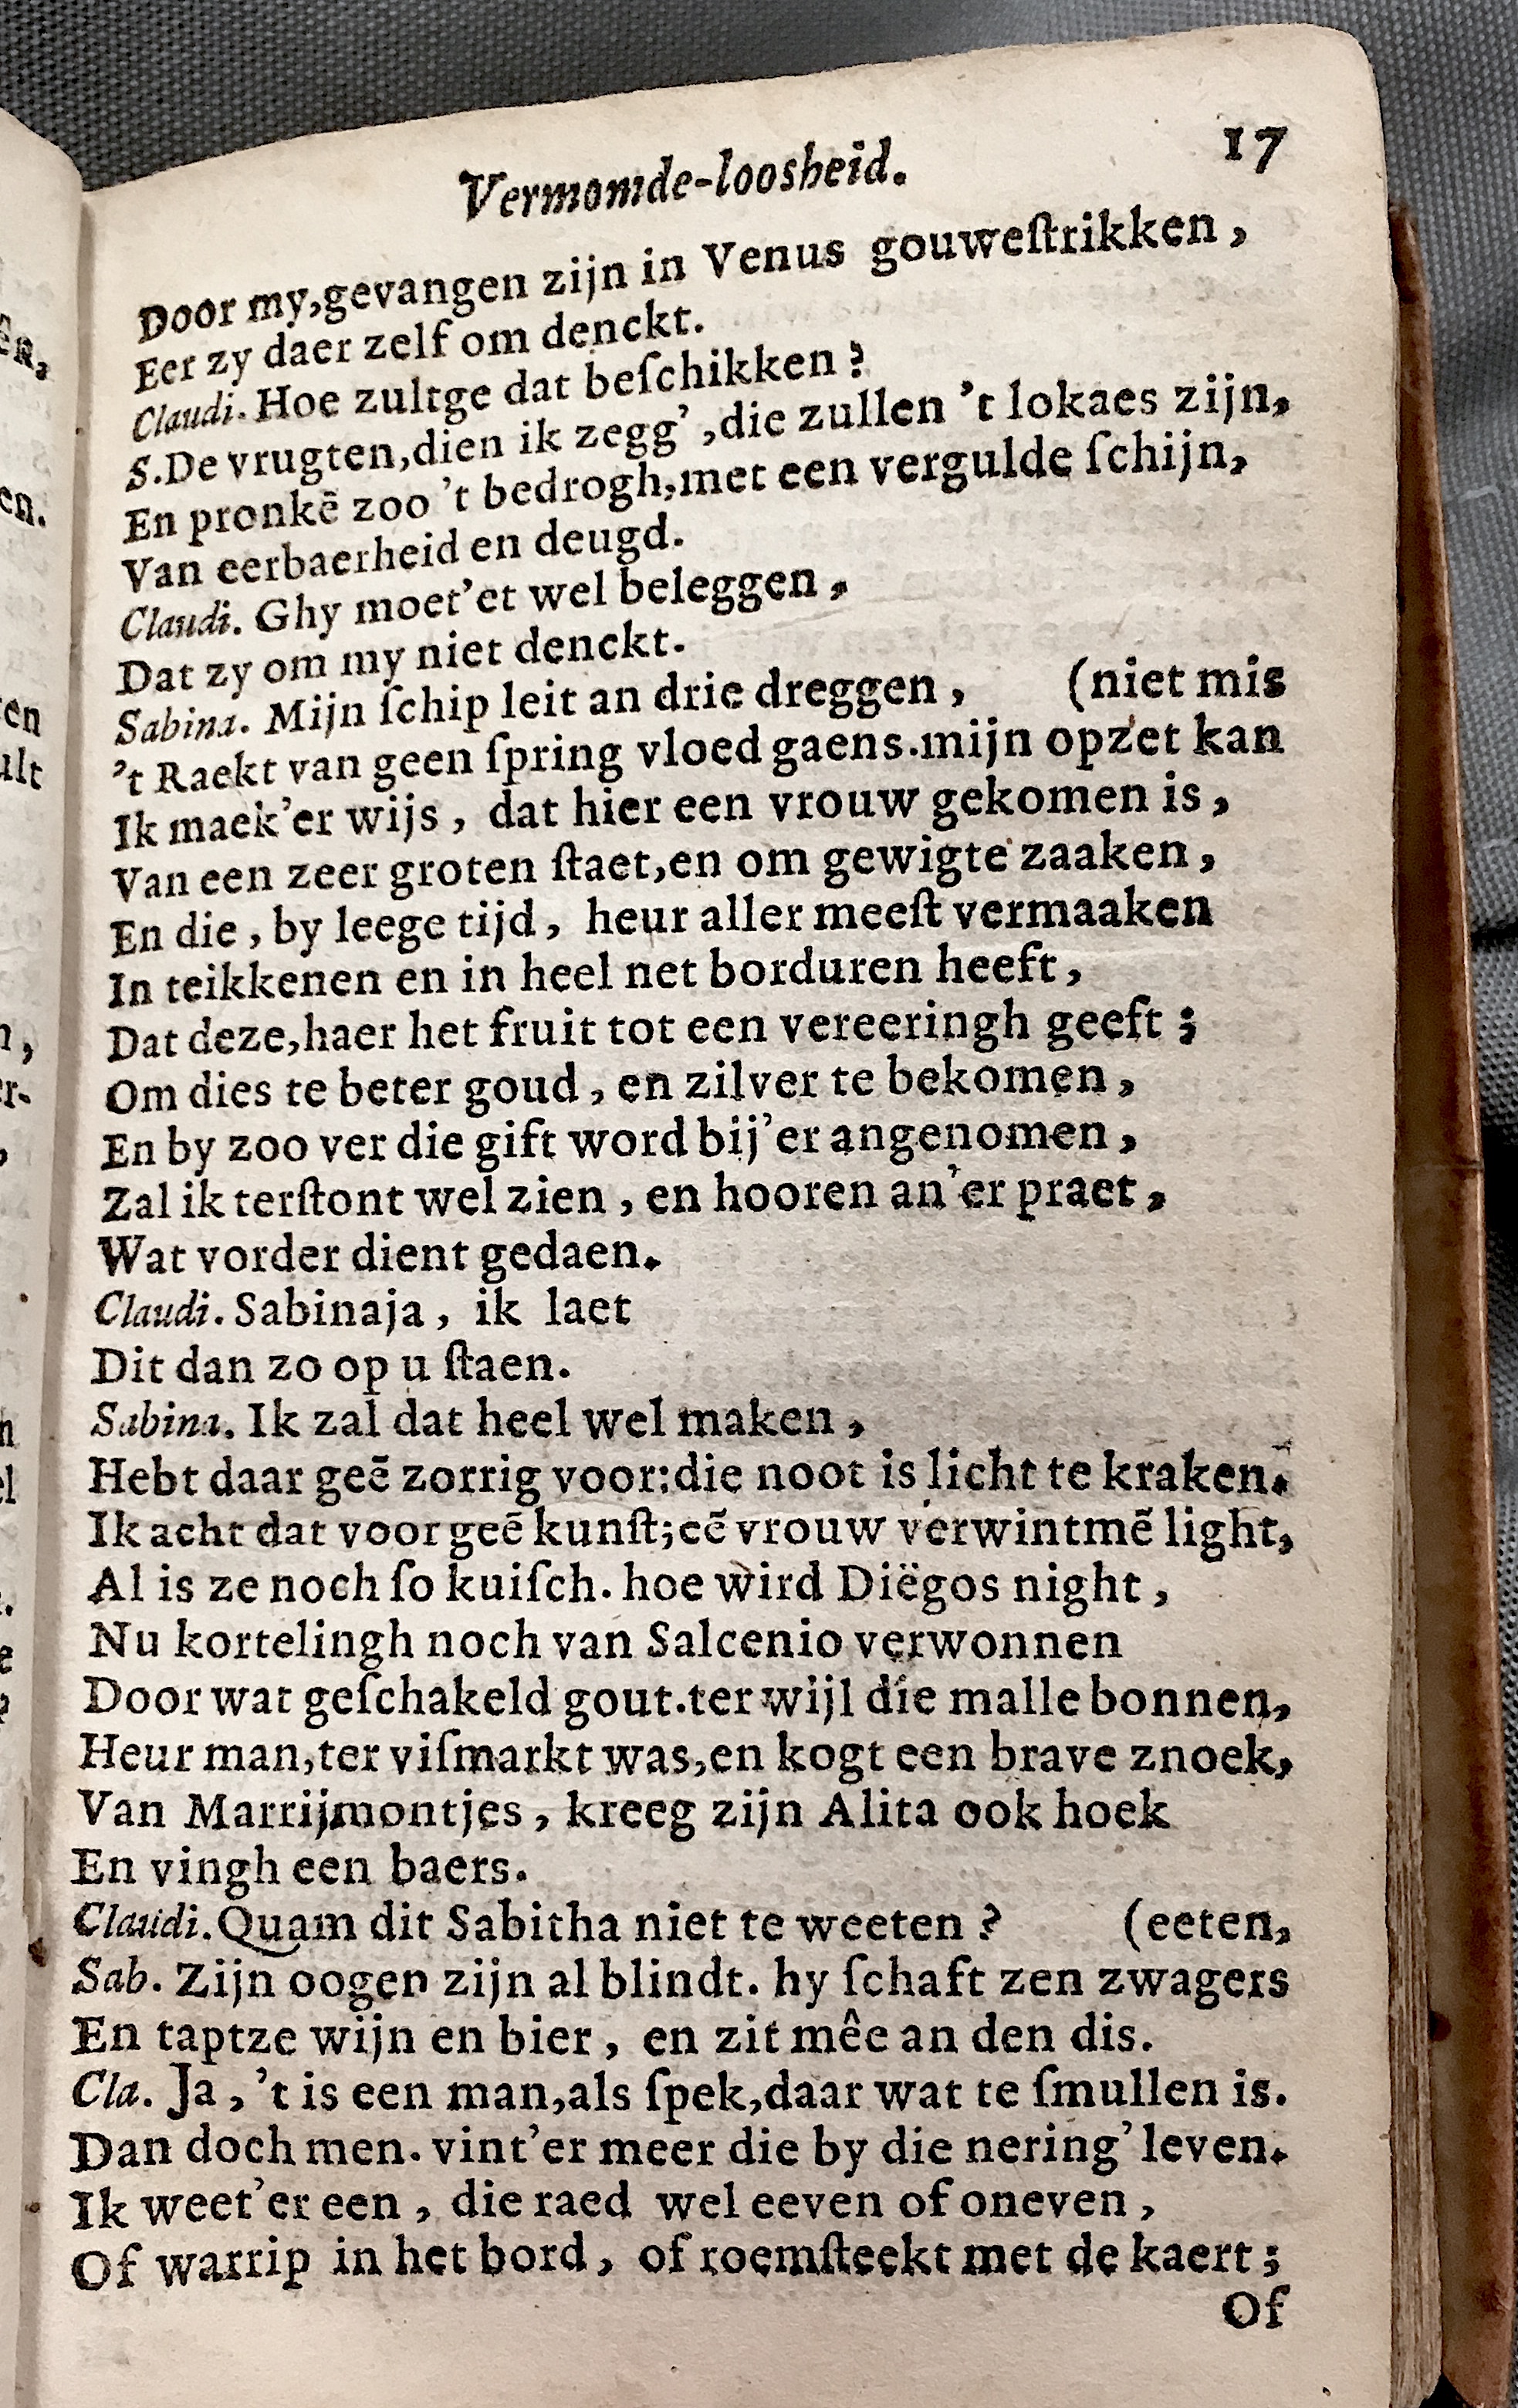 Vermomde-loosheid. 17
Door my,gevangen zijn in Venus gouweſtrikken,
Eer zy daer zelf om denckt.
Claudi. Hoe zultge dat beſchikken?
S.De vrugten,dien ik zegg',die zullen 't lokaes zijn,
En pronkē zoo 't bedrogh,met een vergulde ſchijn,
Van eerbaerheid en deugd.
Claudi. Ghy moet'et wel beleggen,
Dat zy om my niet denckt.
Sabina. Mijn ſchip leit an drie dreggen, (niet mis
't Raekt van geen ſpring vloed gaens.mijn opzet kan
Ik maek'er wijs, dat hier een vrouw gekomen is,
Van een zeer groten ſtaet,en om gewigte zaaken,
En die, by leege tijd, heur aller meeſt vermaaken
In teikkenen en in heel net borduren heeft,
Dat deze,haer het fruit tot een vereeringh geeft;
Om dies te beter goud, en zilver te bekomen,
En by zoo ver die gift word bij'er angenomen,
Zal ik terſtont wel zien, en hooren an'er praet,
Wat vorder dient gedaen.
Claudi. Sabinaja, ik laet
Dit dan zo op u ſtaen.
Sabina. Ik zal dat heel wel maken,
Hebt daar geē zorrig voor:die noot is licht te kraken.
Ik acht dat voor geē kunſt;eē vrouw verwintmē light,
Al is ze noch ſo kuiſch. hoe wird Diëgos night,
Nu kortelingh noch van Salcenio verwonnen
Door wat geſchakeld gout.ter wijl die malle bonnen,
Heur man,ter viſmarkt was,en kogt een brave znoek,
Van Marrijmontjes, kreeg zijn Alita ook hoek
En vingh een baers.
Claudi. Quam dit Sabitha niet te weeten? (eeten,
Sab. Zijn oogen zijn al blindt. hy ſchaft zen zwagers
En taptze wijn en bier, en zit mêe an den dis.
Cla. Ja, 't is een man,als ſpek,daar wat te ſmullen is.
Dan doch men. vint'er meer die by die nering' leven.
Ik weet'er een, die raed wel eeven of oneven,
Of warrip in het bord, of roemſteekt met de kaert;
Of